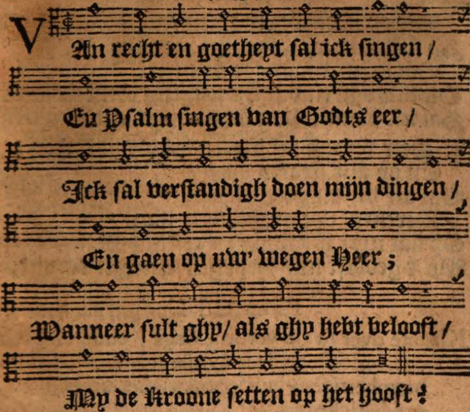 VAn recht en goetheyt sal ick singen /
En Psalm singen van Godts eer /
Ick sal verstandigh doen mijn dingen /
En gaen op uw' wegen Heer ;
Wanneer sult ghy / als ghy hebt belooft /
My de Kroone setten op het hooft ?